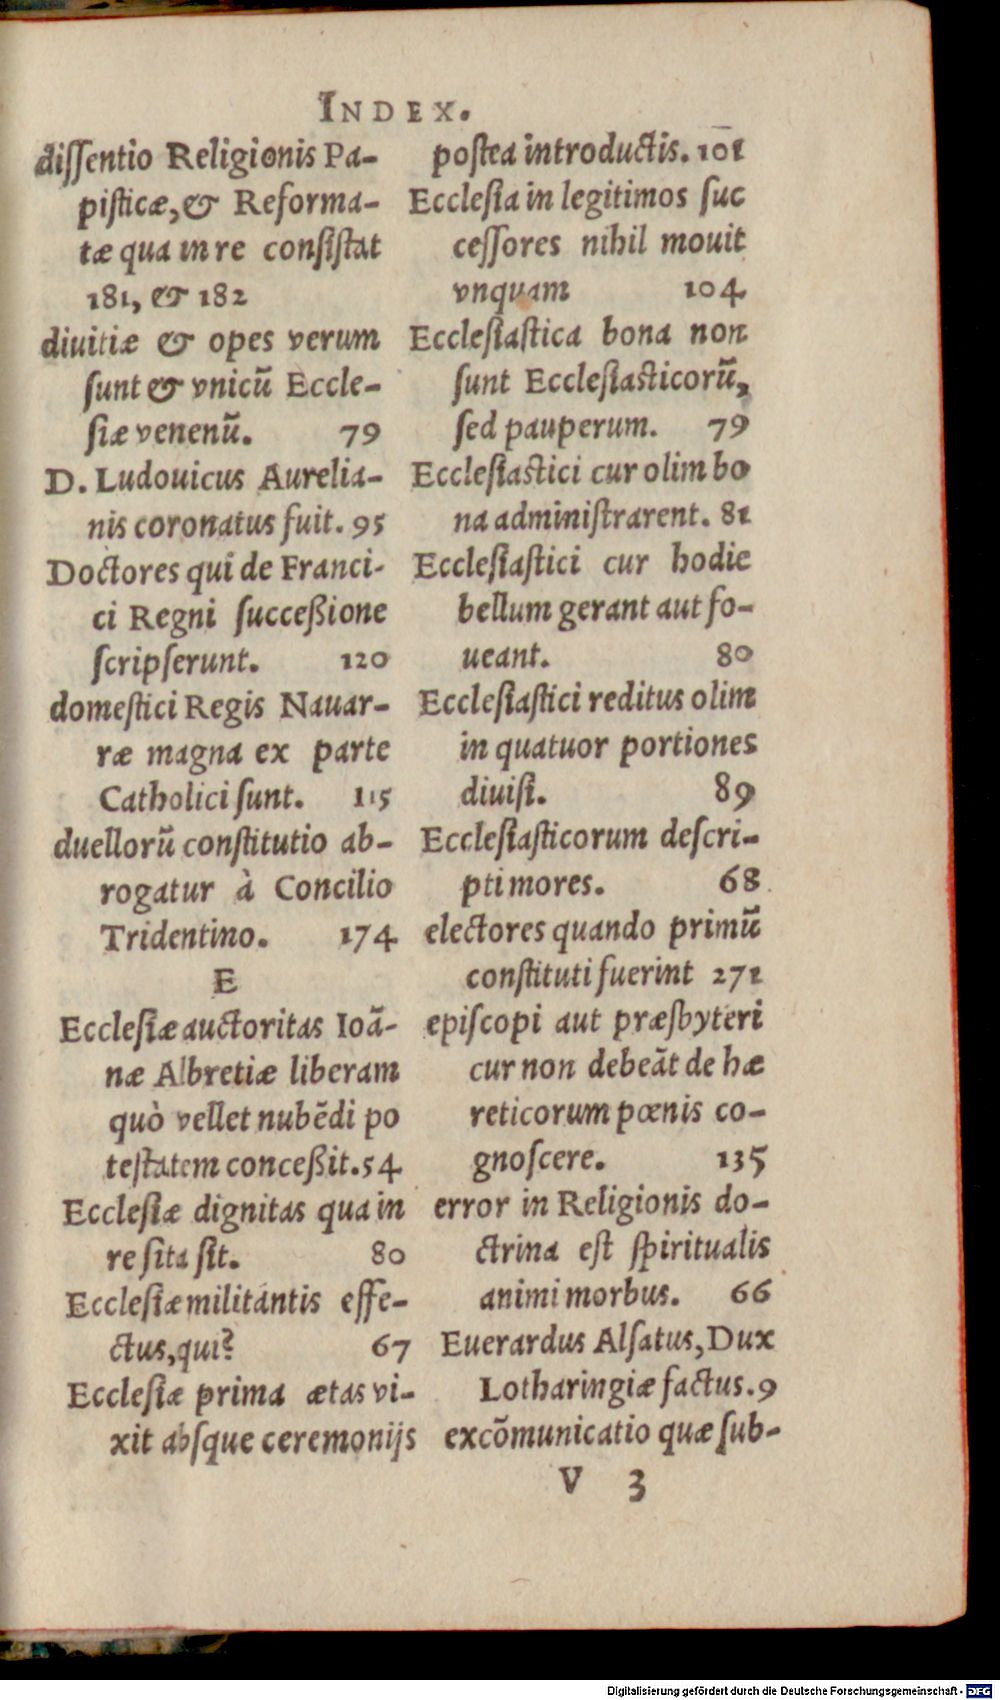 INDEX.
diſſentio Religionis Pa-
piſticæ, & Reforma-
tæ qua in re conſiſtat
181, & 182
diuitiæ & opes verum
ſunt & vnicū Eccle-
ſiæ venenū. 79
D. Ludouicus Aurelia-
nis coronatus fuit. 95
Doctores qui de Franci-
ci Regni ſucceßione
ſcripſerunt. 120
domeſtici Regis Nauar-
ræ magna ex parte
Catholici ſunt. 115
duellorū conſtitutio ab-
rogatur à Concilio
Tridentino. 174
E
Eccleſiæ auctoritas Ioā-
næ Albretiæ liberam
quò vellet nubēdi po
teſtatem conceßit. 54
Eccleſiæ dignitas qua in
re ſita ſit. 80
Eccleſiæ militantis effe-
ctus, qui? 67
Eccleſiæ prima ætas vi-
xit abſque ceremonijs
poſtea introductis. 101
Eccleſia in legitimos ſuc
ceſſores nihil mouit
vnquam 104
Eccleſiaſtica bona non
ſunt Eccleſiaſticorū,
ſed pauperum. 79
Eccleſiaſtici cur olim bo
na adminiſtrarent. 81
Eccleſiaſtici cur hodie
bellum gerant aut fo-
ueant. 80
Eccleſiaſtici reditus olim
in quatuor portiones
diuiſi. 89
Eccleſiaſticorum deſcri-
pti mores. 68
electores quando primū
conſtituti fuerint 271
epiſcopi aut præſbyteri
cur non debeāt de hæ
reticorum pœnis co-
gnoſcere. 135
error in Religionis do-
ctrina eſt ſpiritualis
animi morbus. 66
Euerardus Alſatus, Dux
Lotharingiæ factus. 9
excōmunicatio quæ ſub-
V 3
Digitalisierung gefördert durch die Deutsche Forschungsgemeinschaft - DFG